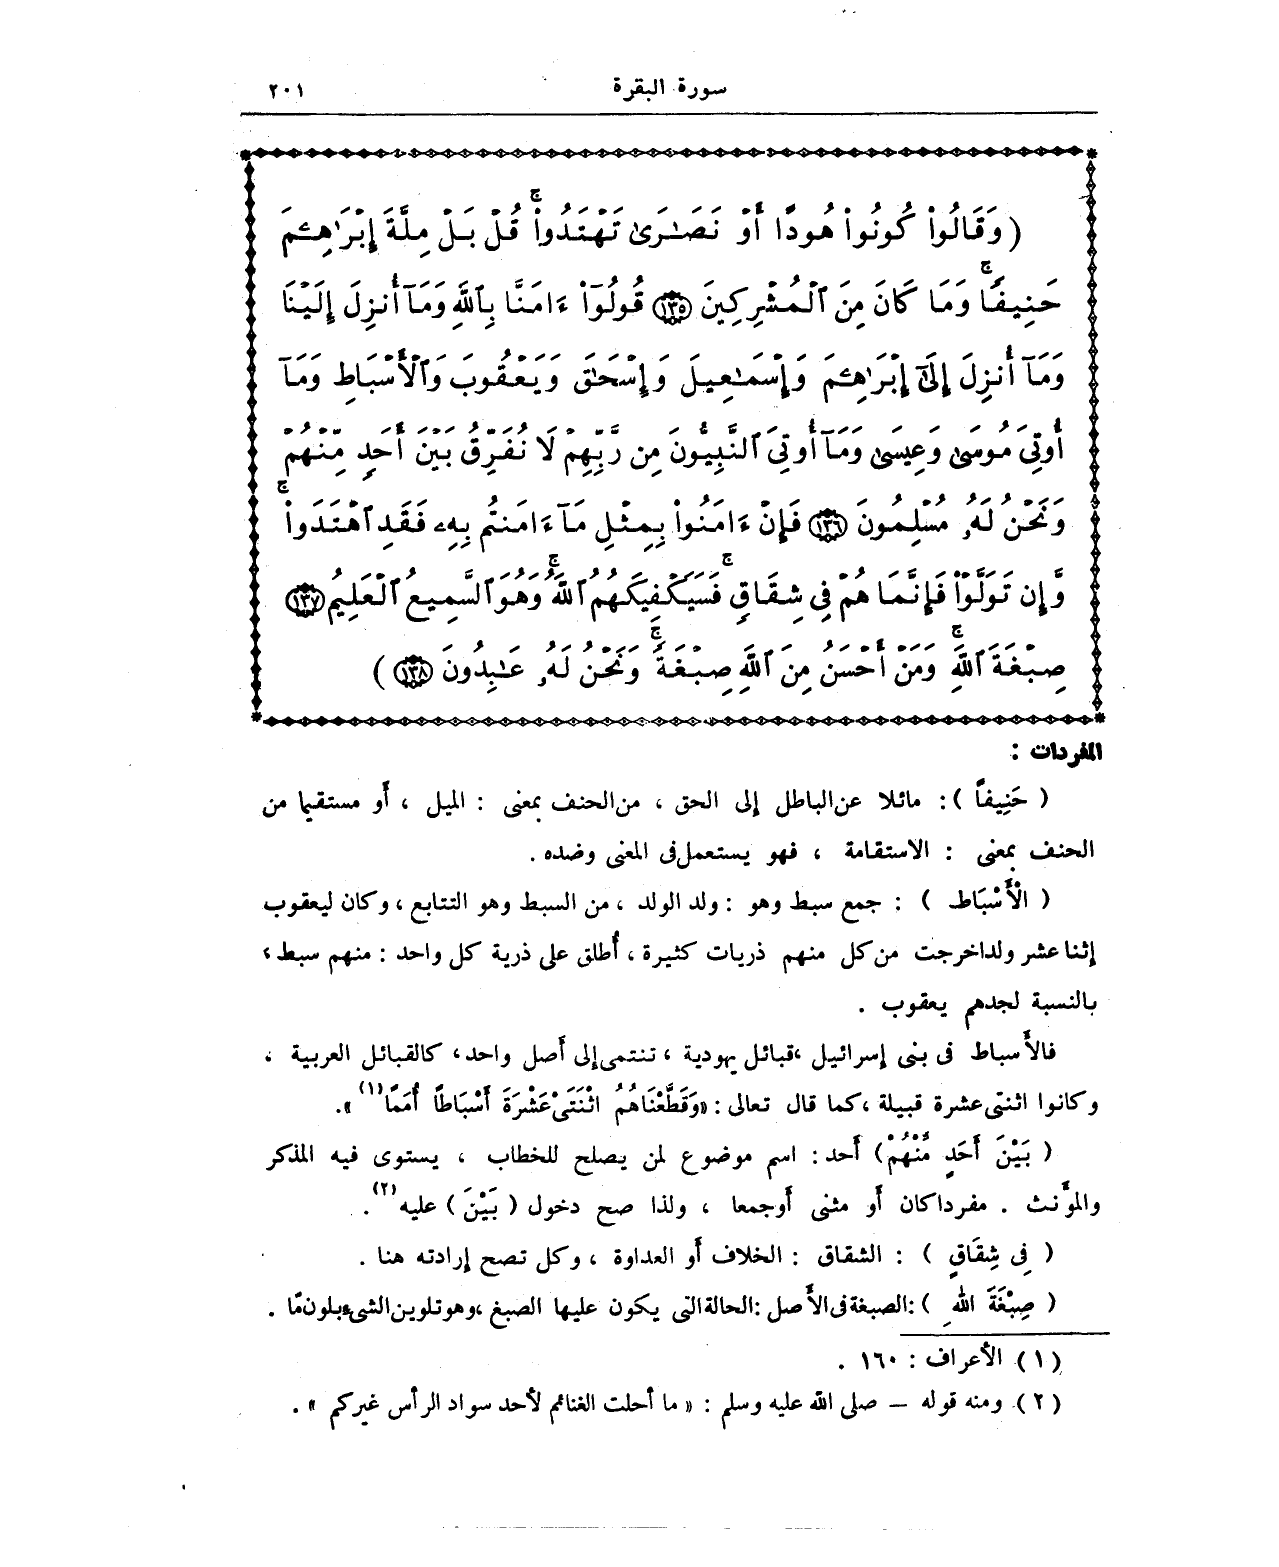 سورة البقرة ٢٠١
( وَقَالُوا۟ كُونُوا۟ هُودًا أَوْ نَصَـٰرَىٰ تَهْتَدُوا۟ ۗ قُلْ بَلْ مِلَّةَ إِبْرَٰهِـۧمَ
حَنِيفًا ۖ وَمَا كَانَ مِنَ ٱلْمُشْرِكِينَ ١٣٥ قُولُوٓا۟ ءَامَنَّا بِٱللَّهِ وَمَآ أُنزِلَ إِلَيْنَا
وَمَآ أُنزِلَ إِلَىٰٓ إِبْرَٰهِـۧمَ وَإِسْمَـٰعِيلَ وَإِسْحَـٰقَ وَيَعْقُوبَ وَٱلْأَسْبَاطِ وَمَآ
أُوتِىَ مُوسَىٰ وَعِيسَىٰ وَمَآ أُوتِىَ ٱلنَّبِيُّونَ مِن رَّبِّهِمْ لَا نُفَرِّقُ بَيْنَ أَحَدٍ مِّنْهُمْ
وَنَحْنُ لَهُۥ مُسْلِمُونَ ١٣٦ فَإِنْ ءَامَنُوا۟ بِمِثْلِ مَآ ءَامَنتُم بِهِۦ فَقَدِ ٱهْتَدَوا۟ ۖ
وَّإِن تَوَلَّوْا۟ فَإِنَّمَا هُمْ فِى شِقَاقٍ ۖ فَسَيَكْفِيكَهُمُ ٱللَّهُ ۚ وَهُوَ ٱلسَّمِيعُ ٱلْعَلِيمُ ١٣٧
صِبْغَةَ ٱللَّهِ ۖ وَمَنْ أَحْسَنُ مِنَ ٱللَّهِ صِبْغَةً ۖ وَنَحْنُ لَهُۥ عَـٰبِدُونَ ١٣٨ )
المفردات :
( حَنِيفاً ) : مائلا عن الباطل إلى الحق ، من الحنف بمعنى : الميل ، أو مستقيما من
الحنف بمعنى : الاستقامة ، فهو يستعمل فى المعنى وضده .
( الْأَسْبَاطِ ) : جمع سبط وهو : ولد الولد ، من السبط وهو التتابع ، وكان ليعقوب
إثنا عشر ولدا خرجت من كل منهم ذريات كثيرة ، أُطلق على ذرية كل واحد : منهم سبط ،
بالنسبة لجدهم يعقوب .
فالأَسباط فى بنى إسرائيل ، قبائل يهودية ، تنتمى إلى أصل واحد ، كالقبائل العربية ،
وكانوا اثنتى عشرة قبيلة ، كما قال تعالى : « وَقَطَّعْنَاهُمُ اثْنَتَىْ عَشْرَةَ أَسْبَاطًا أُمَمًا (١) » .
( بَيْنَ أَحَدٍ مِّنْهُمْ ) أَحد : اسم موضوع لمن يصلح للخطاب ، يستوى فيه المذكر
والمؤنث . مفردا كان أَو مثنى أَو جمعا ، ولذا صح دخول ( بَيْنَ ) عليه (٢) .
( فِى شِقَاقٍ ) : الشقاق : الخلاف أَو العداوة ، وكل تصح إرادته هنا .
( صِبْغَةَ اللهِ ) : الصبغة فى الأَصل : الحالة التى يكون عليها الصبغ ، وهو تلوين الشىء بلون مَّا .
(١) الأعراف : ١٦٠ .
(٢) ومنه قوله – صلى الله عليه وسلم : « ما أحلت الغنائم لأحد سواد الرأس غيركم » .